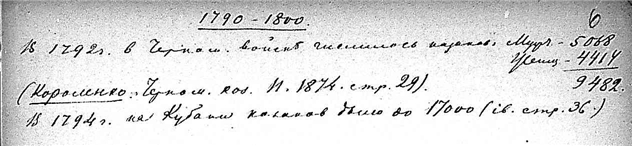 1790-1800. 6
В 1792г. в Черном. войскѣ числилось казаков: Мущ - 5068
Женщ - 4414
9482.
(Короленко. Черном. коз. И. 1874. стр. 29).
В 1794г. на Кубани казаков было до 17000 (ib. стр. 36.)